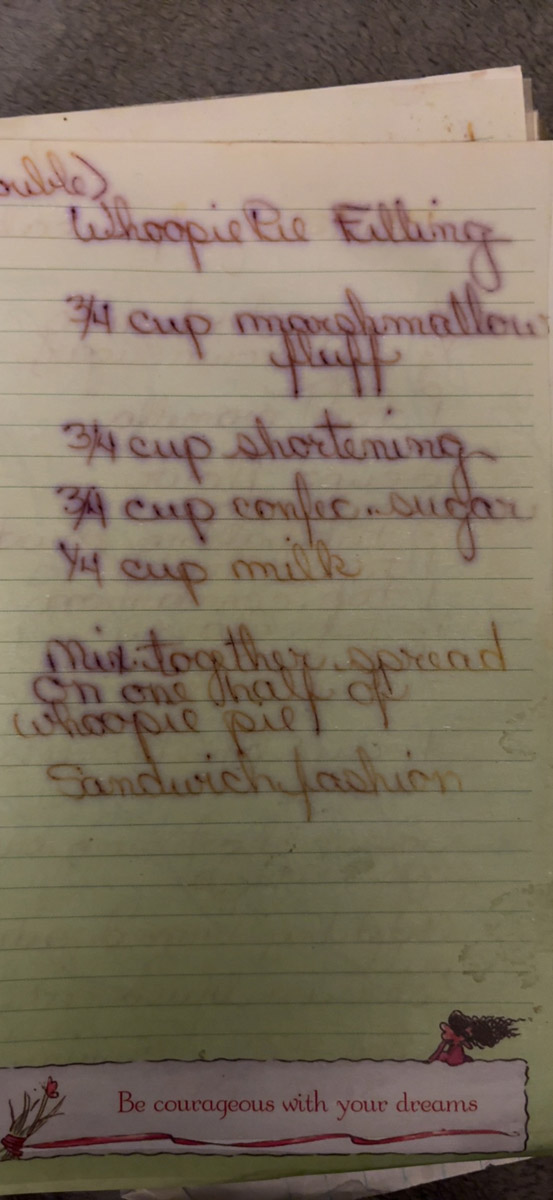 ouble)
Whoopie Pie Filling
3/4 cup marshmallow
fluff
3/4 cup shortening
3/4 cup confec. sugar
1/4 cup milk
Mix together spread
On one half of
whoopie pie
Sandwich fashion
Be courageous with your dreams